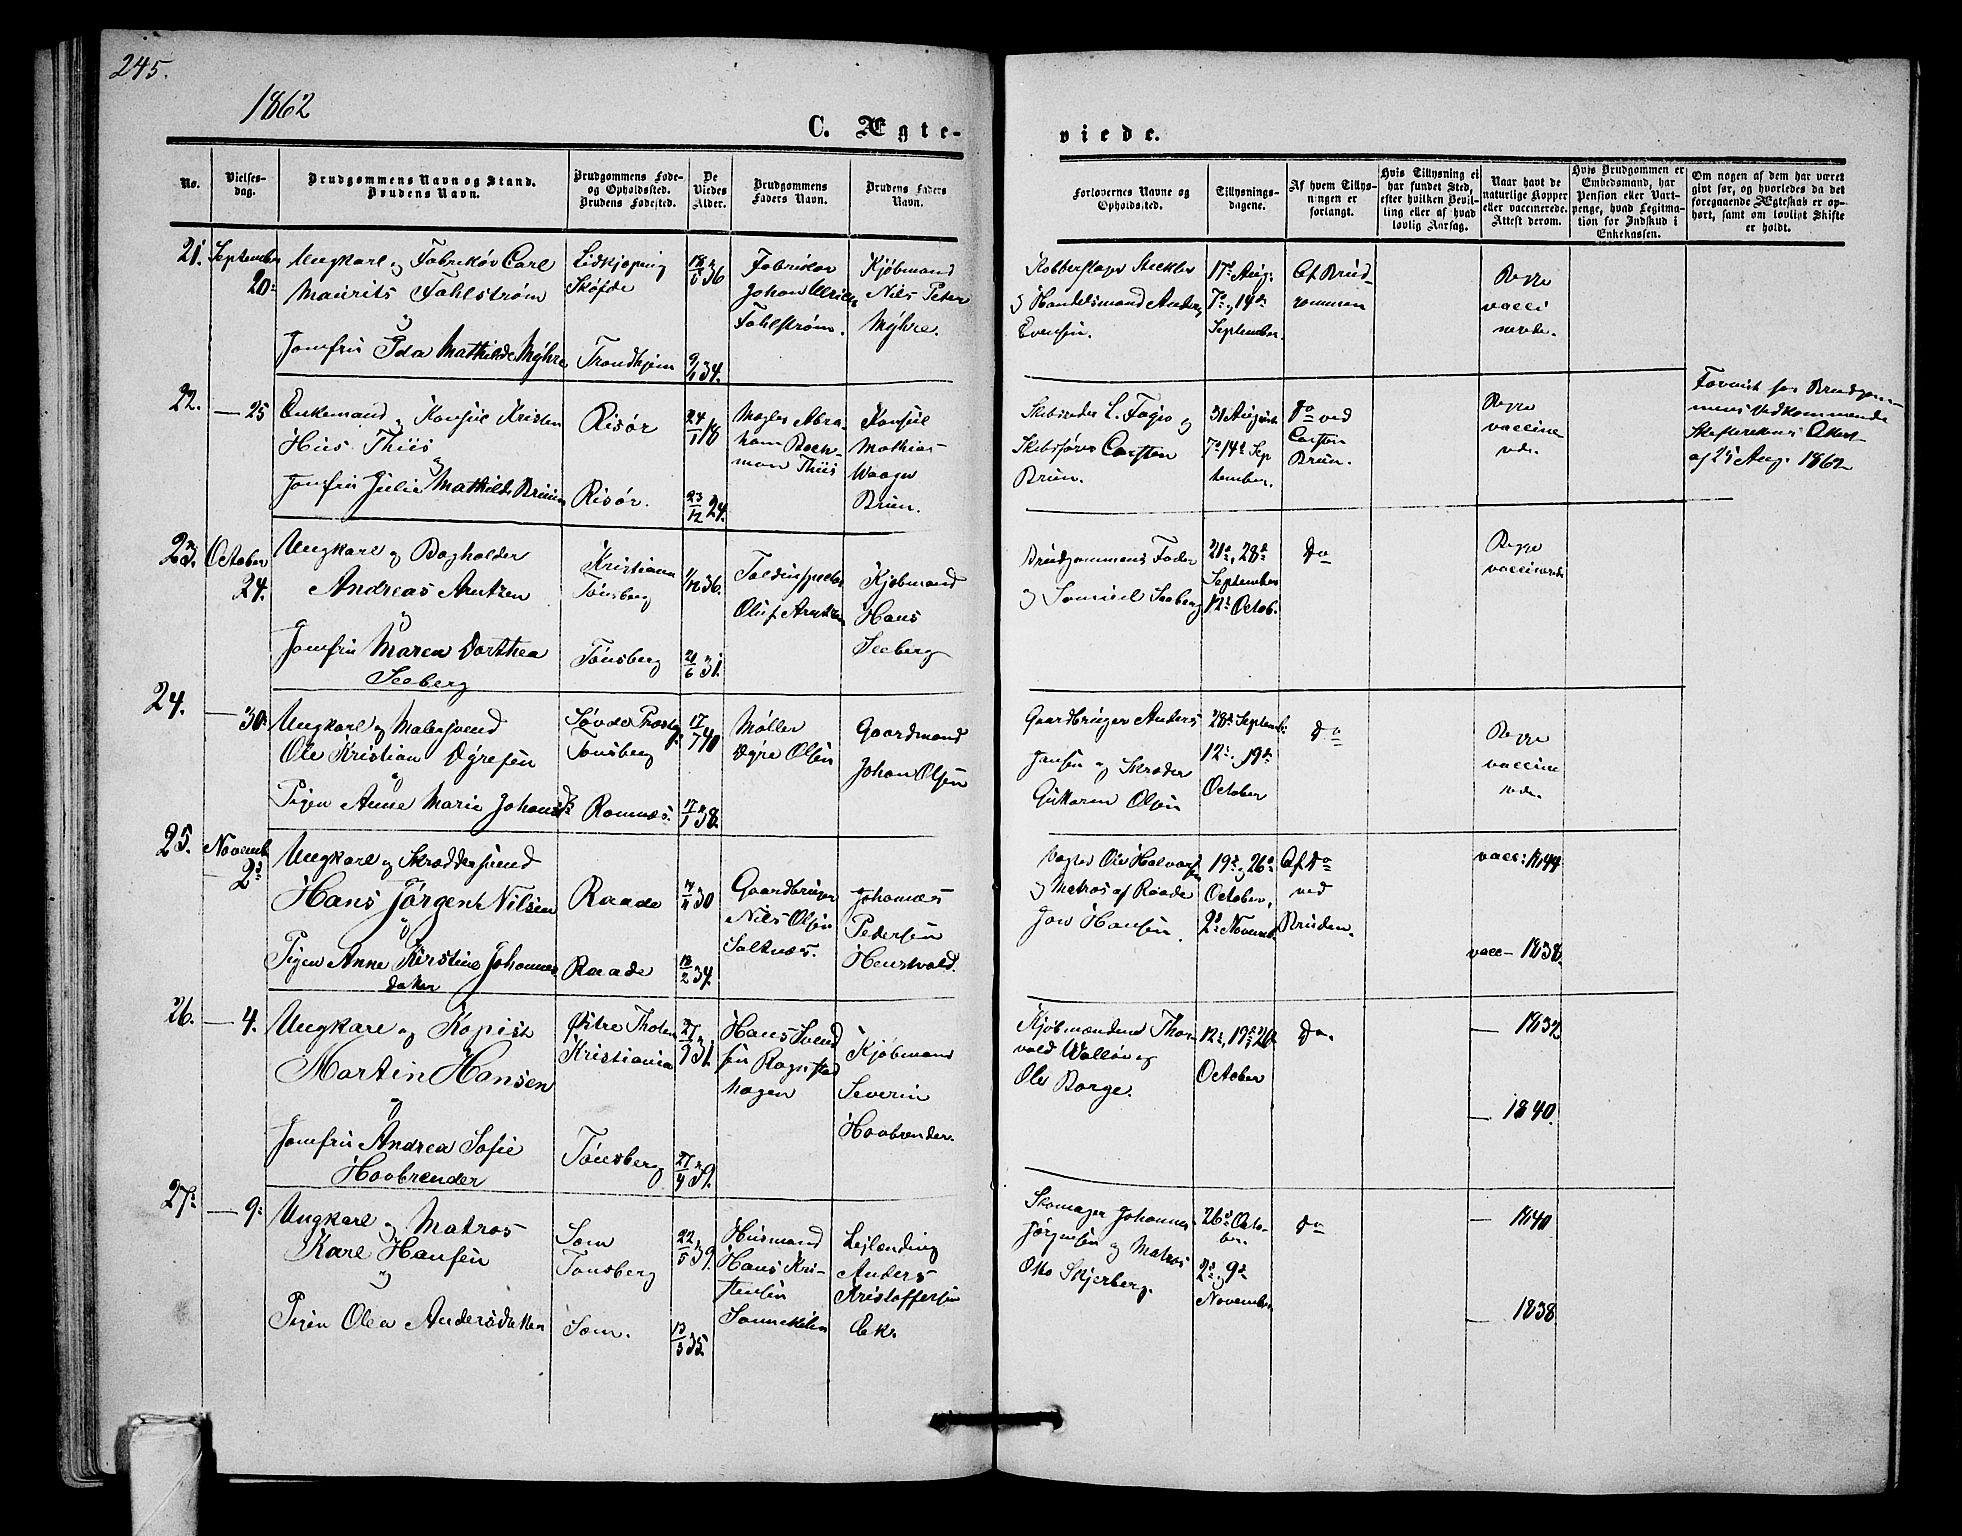 245.
1862
C. Ægte-
viede.
No.
Vielses-
dag.
Brudgommens Navn og Stand.
Brudens Navn.
Brudgommens Føde-
og Opholdssted.
Brudens Fødested.
De
Viedes
Alder.
Brudgommens
Faders Navn.
Brudens Faders
Navn.
Forlovernes Navne og
Opholdssted.
Tillysnings-
dagene.
Af hvem Tillys-
ningen er
forlangt.
Hvis Tillysning ei
har fundet Sted,
efter hvilken Bevil-
ling eller af hvad
lovlig Aarsag.
Naar havt de
naturlige Kopper
eller vaccinerede.
Attest derom.
Hvis Brudgommen er
Embedsmand, har
Pension eller Vart-
penge, hvad Legitima-
tion for Indskud i
Enkekassen.
Om nogen af dem har været
gift før, og hvorledes da det
foregaaende Ægteskab er op-
hørt, samt om lovligt Skifte
er holdt.
21. September
20
Ungkarl og Fabrikør Carl
Maurits Fahlstrøm
og
Jomfru Ida Mathilde Myhre
Lidkjøping
Skøfde
Trondhjem
18/5 36
9/1 34.
Fabrikør
Johan Ulrich
Fahlstrøm.
Kjøbmand
Nils Peter
Myhre.
Kobberslager
og Handelsmand Anders
Evensen.
17 Aug.
7de, 14de
September
Af Brud-
gommen
Begge
vacci
nerede.
22. — 25
Enkemand og Konsul Kristen
Huus Thiis
og
Jomfru Julie Mathilde Bruun
Risør
Risør.
24/1 18
23/12 24.
Mægler Abra-
ham Bock-
man Thiis
Konsul
Mathias
Waage
Bruun.
Skibsreder L. Fogio og
Skibsfører Carsten
Bruun.
31 August
7de 14de Sep
tember.
Do ved
Carsten
Bruun.
Begge
vaccine
rede.
Forevist for Brudgom-
mens Vedkommende
Skifterettens Attest
af 25 Aug. 1862
23. October
24.
Ungkarl og Bogholder
Andreas Arntzen
og
Jomfru Maren Dorthea
Seeberg
Kristiania
Tønsberg
Tønsberg
1/12 36.
21/6 31.
Toldinspecteur
Oluf Arntzen
Kjøbmand
Hans
Seeberg
Brudgommens Fader
og Samuel Seeberg
21de, 28de
September
12te Octob.
Do
Begge
vaccinerede
24. — 30
Ungkarl og Malersvend
Ole Kristian Dyresen
og
Pigen Anne Marie Johansd.
Tønsberg
Ramnæs.
17/7 40
17/1 38.
Møller
Dyre Olsen
Gaardmand
Johan Olsen
Gaardbruger Anders
Jansen og Skræder
Guttorm Olsen
28de Septemb.
12te, 19de
October
Do
Begge
vaccine
rede.
25. Novemb.
2den
Ungkarl og Skræddersvend
Hans Jørgen Nilsen
og
Pigen Anne Kirstine Johannes
datter
Raade
Raade
30
18/2 34.
Gaardbruger
Nils Olsen
Saltnæs.
Johannes
Pedersen
Henstvald.
Vægter Ole Halvorsen
og Matros af Raade
Jon Hansen.
19de og 26de
October,
2den Novemb.
Af Do
ved
Bruden.
vacc: 1844
vacc — 1838.
26. — 4.
Ungkarl og Kopist
Martin Hansen
og
Jomfru Andrea Sofie
Hovbrender
Østre Thoten
Kristiania
Tønsberg
27/9 31.
27/4 39.
Hans Svend
sen Rognstad
hagen
Kjøbmand
Severin
Hovbrender.
Kjøbmændene Thor
vald Walløe og
Ole Borge.
12te, 19de 26
October
Do.
— 1832
— 1840.
27. — 9.
Ungkarl og Matros
Karl Hansen
og
Pigen Olea Andersdatter
Sem
Tønsberg
Sem.
22/5 39.
13/3 35.
Husmand
Hans Kri-
stensen
Leilænding
Anders
Kristoffersen
Eke
Skomager Johannes
Jørgensen og Matros
Otto Skjerberg.
26de Octo-
ber.
2den 9de
November
Do
— 1840
— 1838